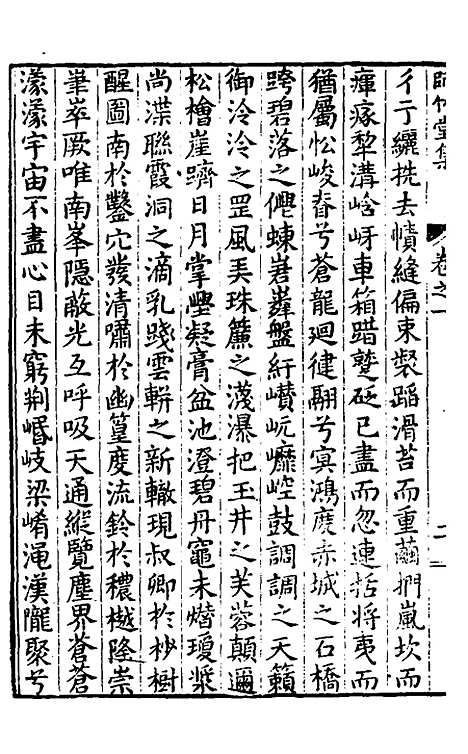 師竹堂集
卷之一
二
彳亍纚挩去幘縫偏束製蹈滑苔而重繭捫嵐坎而
瘒瘃犁溝峆岈車箱踖躠砭已盡而忽連括將夷而
猶屬忪峻眘兮蒼龍迴徤翮兮寞鴻度赤城之石橋
跨碧落之僊蝀嵒嶭盤紆巑岏𡾊崆鼓調調之天籟
御泠泠之罡風弄珠簾之濺瀑把玉井之芙蓉顛邇
松檜崖躋日月掌壆凝膏盆池澄碧丹竈未熸瓊漿
尚渫聯霞洞之滴乳踐雲軿之新轍現叔卿於桫樹
醒圖南於鑿穴發清嘯於幽篁度流鈴於穠樾隆崇
峚崒厥唯南峯隱蔽光互呼吸天通縱覽塵界蒼蒼
濛濛宇宙不盡心目未窮荆嶓岐梁崤澠漢隴聚兮